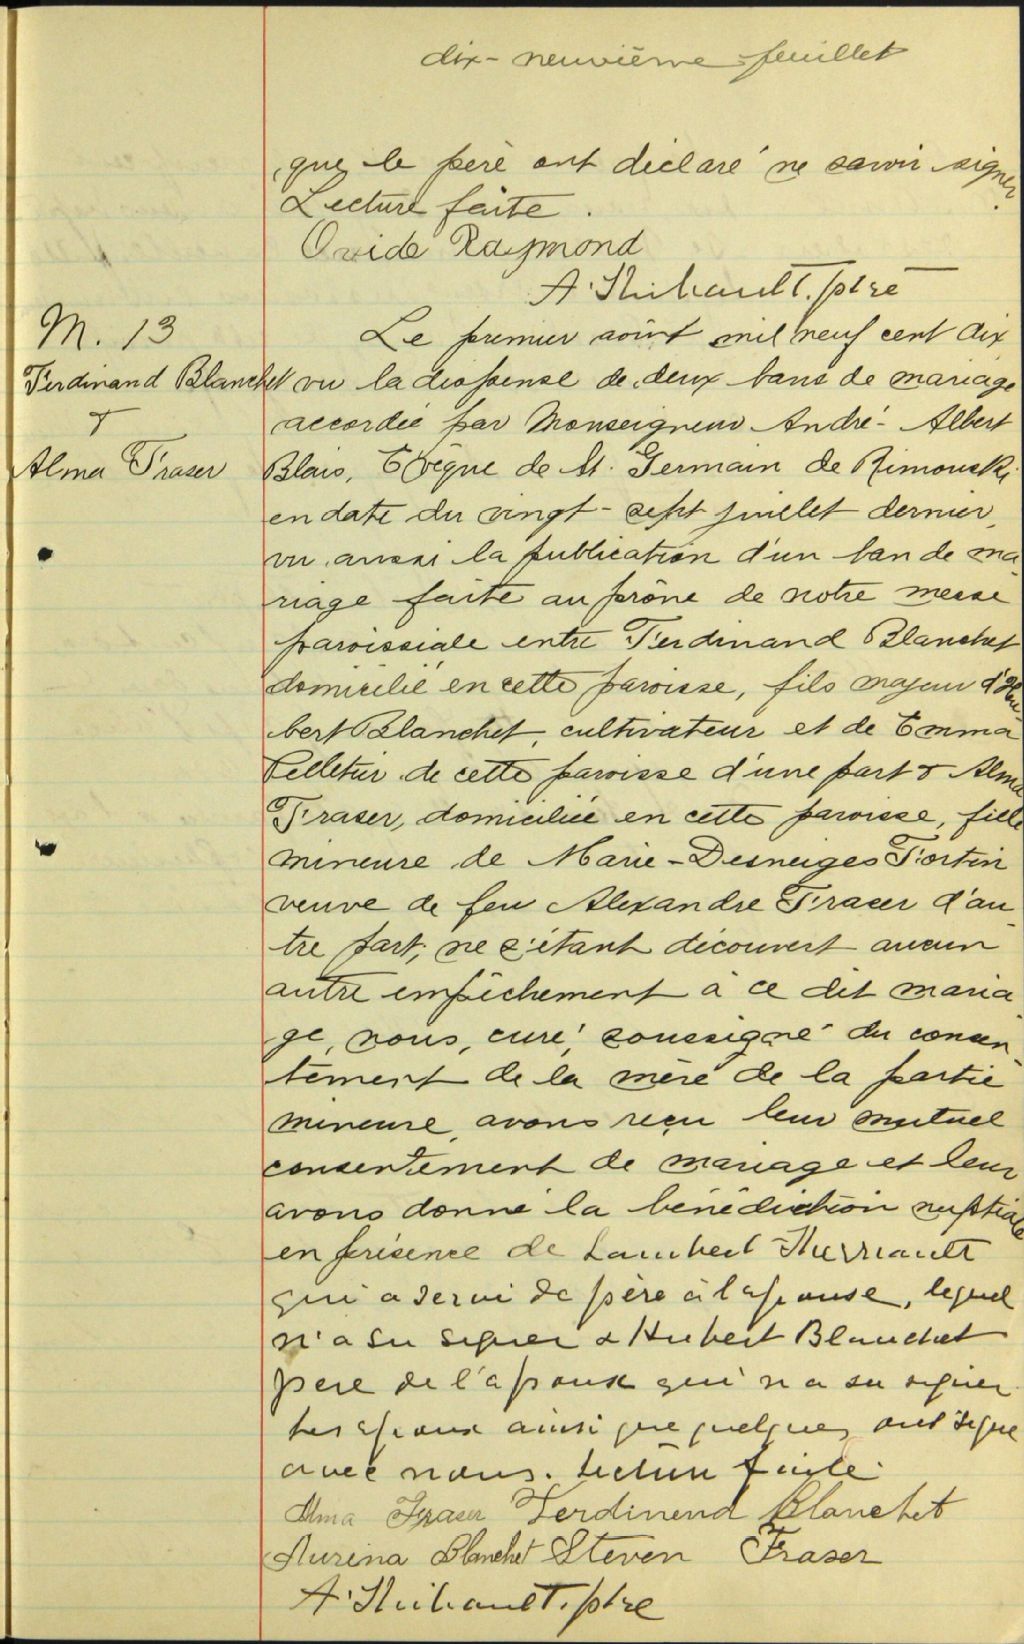 dix-neuvième feuillet
que le père ont déclaré ne savoir signer.
Lecture faite.
Ovide Raymond
A. Thibault, ptre
M. 13
Ferdinand Blanchet
&
Alma Fraser
Le premier août mil neuf cent dix
vu la dispense de deux bans de mariage
accordée par Monseigneur André-Albert
Blais, Évêque de St. Germain de Rimouski
en date du vingt-sept juillet dernier,
vu aussi la publication d'un ban de ma
riage faite au prône de notre messe
paroissiale entre Ferdinand Blanchet
domicilié en cette paroisse, fils majeur d'Hu-
bert Blanchet, cultivateur et de Emma
Pelletier de cette paroisse d'une part & Alma
Fraser, domiciliée en cette paroisse, fille
mineure de Marie-Desneiges Fortin
veuve de feu Alexandre Fraser d'au
tre part, ne s'étant découvert aucun
autre empêchement à ce dit maria
ge, nous, curé, soussigné du consen
tement de la mère de la partie
mineure, avons reçu leur mutuel
consentement de mariage et leur
avons donné la bénédiction nuptiale
en présence de Lambert Therriault
qui a servi de père à l'épouse, lequel
n'a su signer & Hubert Blanchet
père de l'époux qui n'a su signer.
Les époux ainsi que quelques ont signé
avec nous. Lecture faite.
Alma Fraser Ferdinend Blanchet
Aurina Blanchet Steven Fraser
A. Thibault, ptre